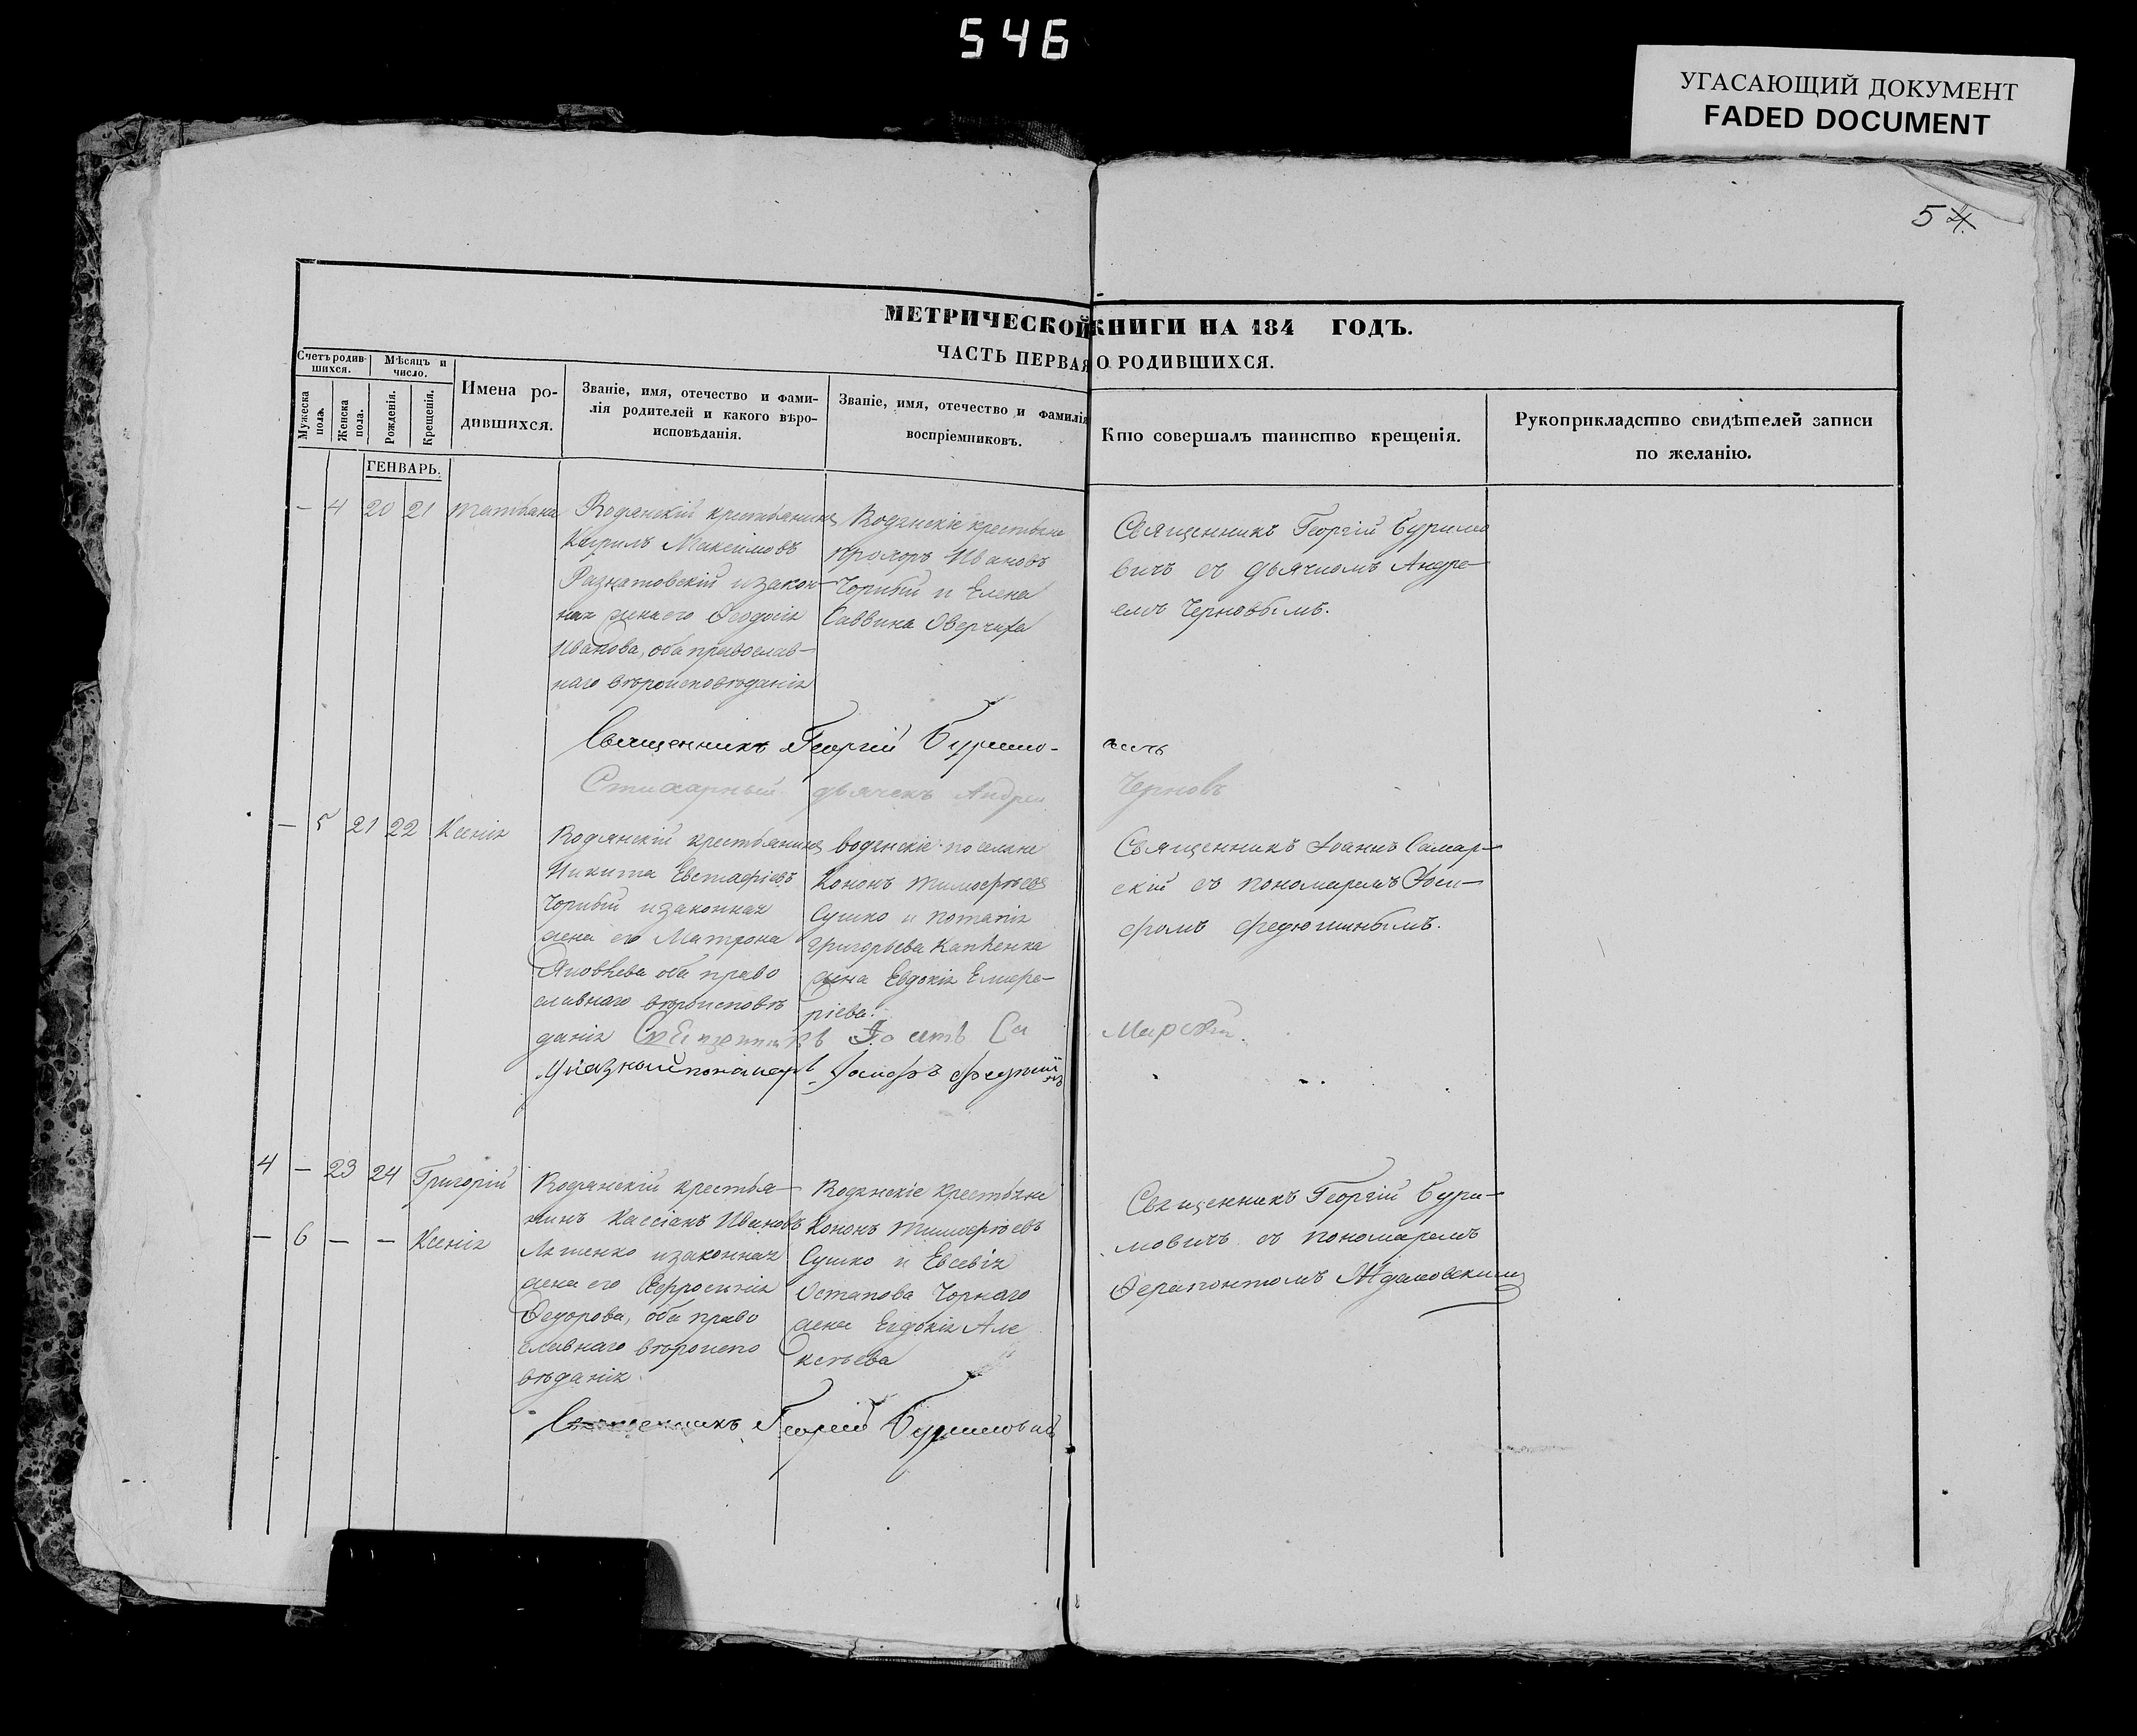 546
УГАСАЮЩИЙ ДОКУМЕНТ
FADED DOCUMENT
5
МЕТРИЧЕСКОЙ КНИГИ НА 184 ГОДЪ.
ЧАСТЬ ПЕРВАЯ О РОДИВШИХСЯ.
Счетъ родив-
шихся.
Мѣсяцъ и
число.
Мужеска
пола.
Женска
пола.
Рожденія.
Крещенія.
Имена ро-
дившихся.
Званіе, имя, отечество и фами-
лія родителей и какого вѣро-
исповѣданія.
Званіе, имя, отечество и фамилія
воспріемниковъ.
Кто совершалъ таинство крещенія.
Рукоприкладство свидѣтелей записи
по желанію.
ГЕНВАРЬ.
— 4 20 21 Татіана
Водянскій крестьянинъ
Кирилъ Максимовъ
и закон-
ная жена его Ѳеодосія
Иванова, оба православ-
наго вѣроисповѣданія
Водянскіе крестьяне
Прохоръ Ивановъ
Чорный и Елена
Саввина
Священникъ Георгій Буримо
вичъ съ дьячкомъ Андре-
емъ Черновымъ.
Священникъ Георгій Буримо- вичъ
Стихарный дьячекъ Андрей Черновъ
— 5 21 22 Ксенія
Водянскій крестьянинъ
Никита Евстафіевъ
Чорный и законная
жена его Матрона
Яковлева оба право
славнаго вѣроисповѣ
данія
водянскіе поселяне
Кононъ Тимофѣевъ
Сушко и
Григорьева
жена Евдокія Елифе-
ріева.
Священникъ Іоаннъ Самар-
скій съ пономаремъ Іоси-
фомъ Федюшинымъ.
Священникъ Іоаннъ Са марскій.
Указной пономарь Іосифъ Федюшинъ
4 — 23 24 Григорій
— 6 — — Ксенія
Водянскій крестья-
нинъ Кассіанъ Ивановъ
Ляшенко и законная
жена его Евфросинія
Ѳедорова, оба право
славнаго вѣроиспо
вѣданія
Водянскіе крестьяне
Кононъ Тимофѣевъ
Сушко и Евсевія
Остапова Чорнаго
жена Евдокія Але
ксѣева
Священникъ Георгій Бури-
мовичъ съ пономаремъ
Ѳерапонтомъ
Священникъ Георгій Буримовичъ